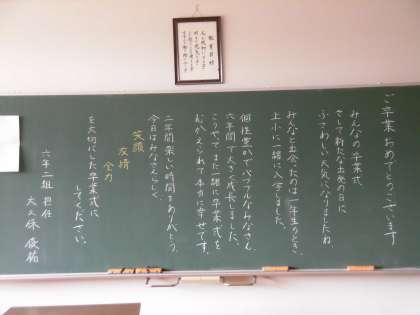 ご卒業おめでとうございます
みんなの卒業式、
そして新たな出発の日に
ふさわしい天気になりましたね
みんなと出会ったのは一年生のとき、
上小に一緒に入学しました。
個性豊かでパワフルなみなさん。
六年間で大きく成長しました。
こうやてまた一緒に卒業式を
むかえられて本当に幸せです。
二年間楽しい時間をありがとう。
今日はみなさんらしく、
笑顔
友情
全力
を大切にした卒業式に
してください。
六年二組 担任
大久保 俊祐